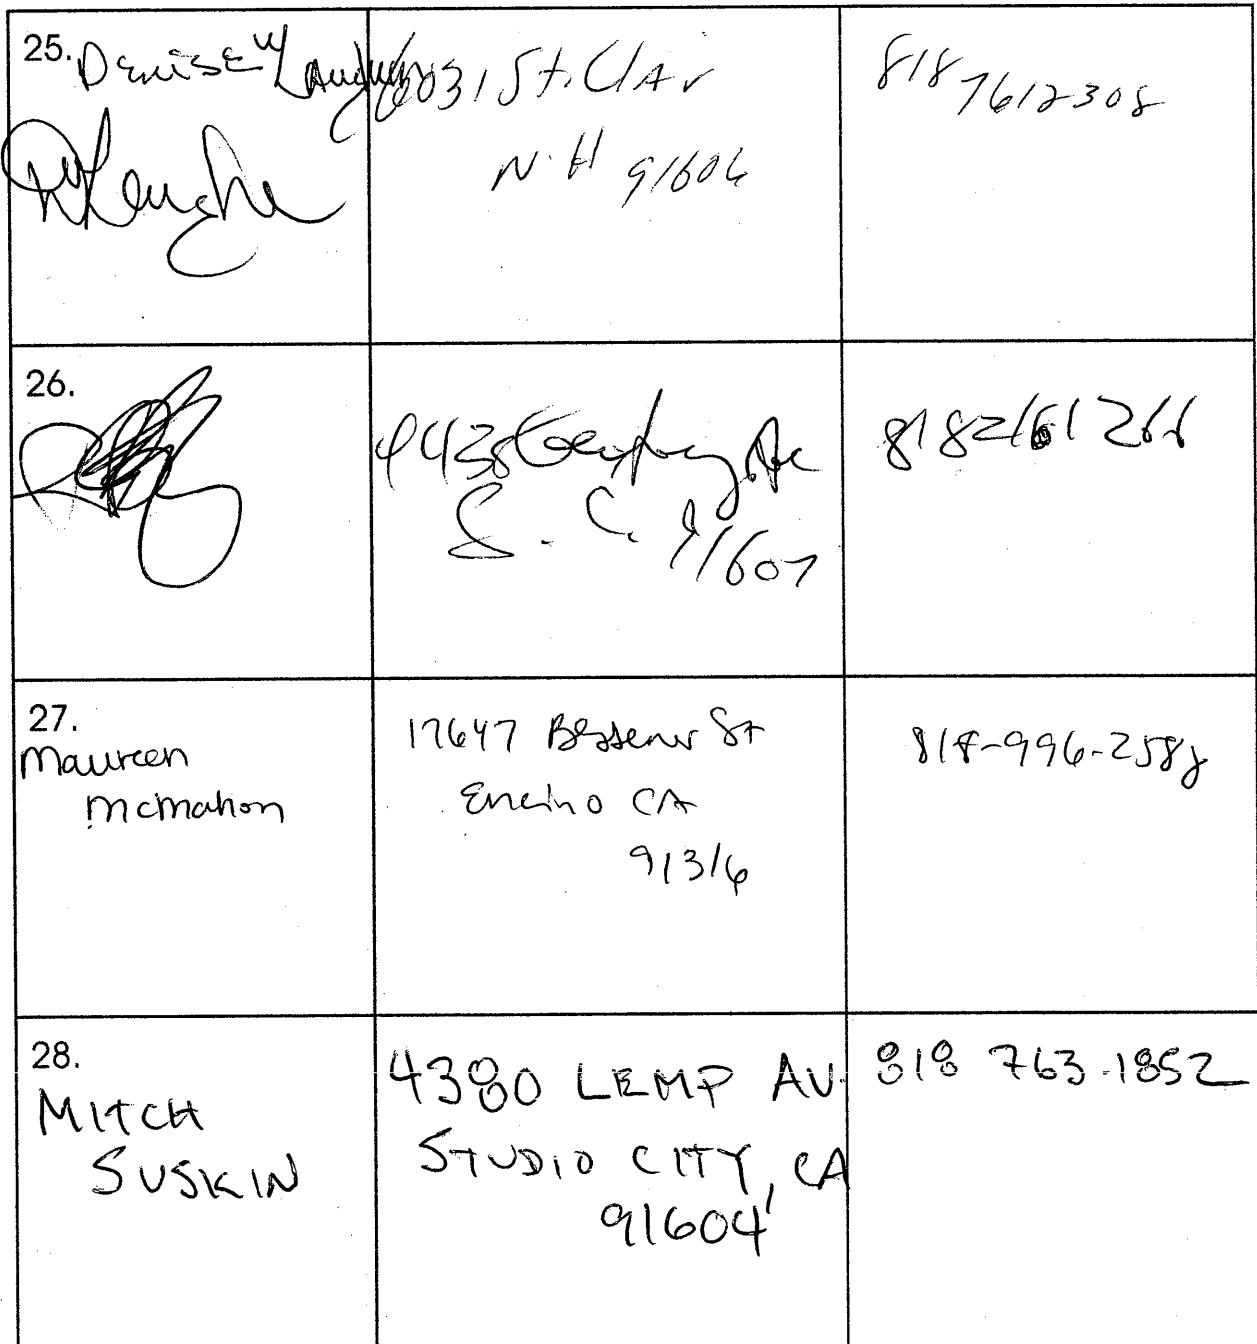 25. Denise W
6031 St. Clair
N. H 91606
818 7612308
26.
4438
S. C. 91607
8182161266
27.
Maureen
McMahon
17647 Bessemer St
Encino CA
91316
818-996-2588
28.
MITCH
SUSKIN
4380 LEMP AV.
STUDIO CITY, CA
91604
818 763-1852